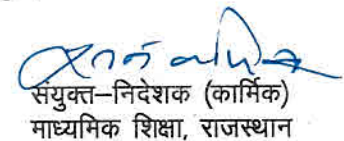 संयुक्त–निदेशक (कार्मिक)
माध्यमिक शिक्षा, राजस्थान